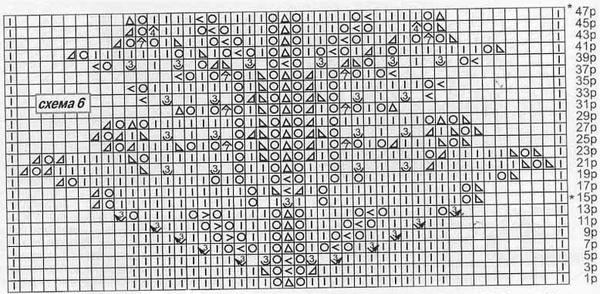 * 47р
45р
43р
41р
39р
37р
35р
33р
схема 6
31р
29р
27р
25р
23р
21р
19р
17р
* 15р
13р
11р
9р
7р
5р
3р
1р